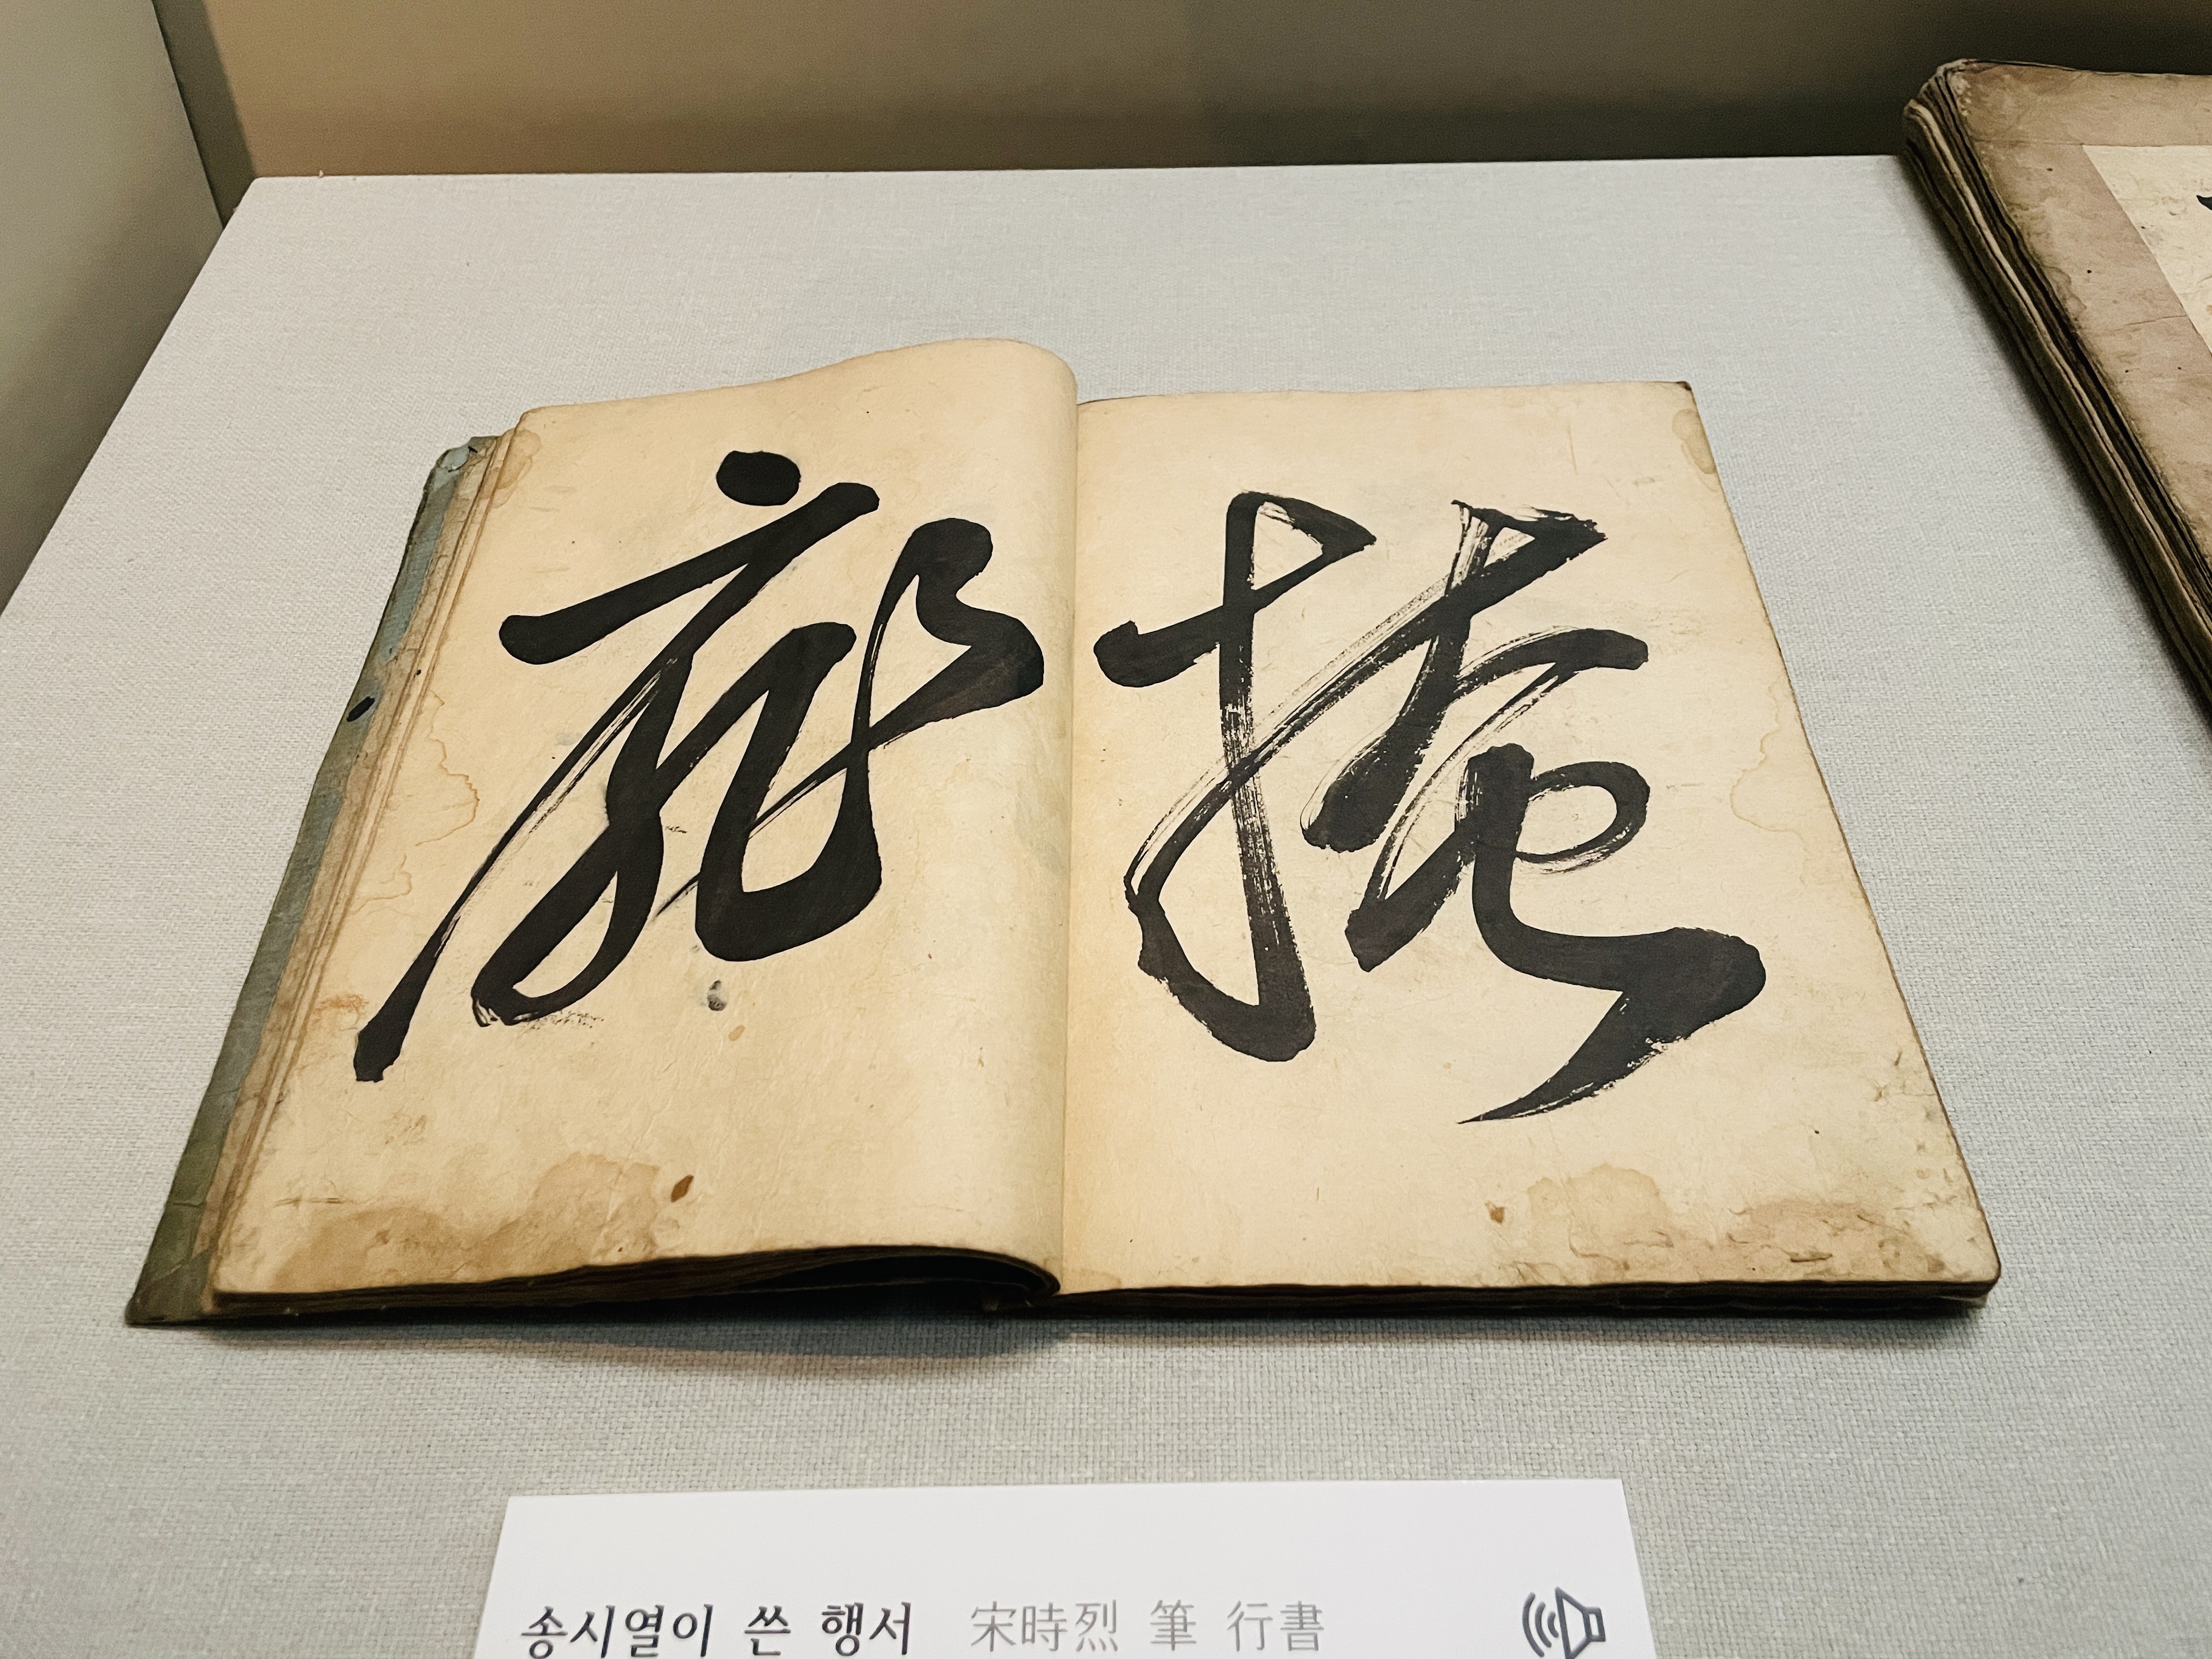 掩
송시열이 쓴 행서 宋時烈 筆 行書